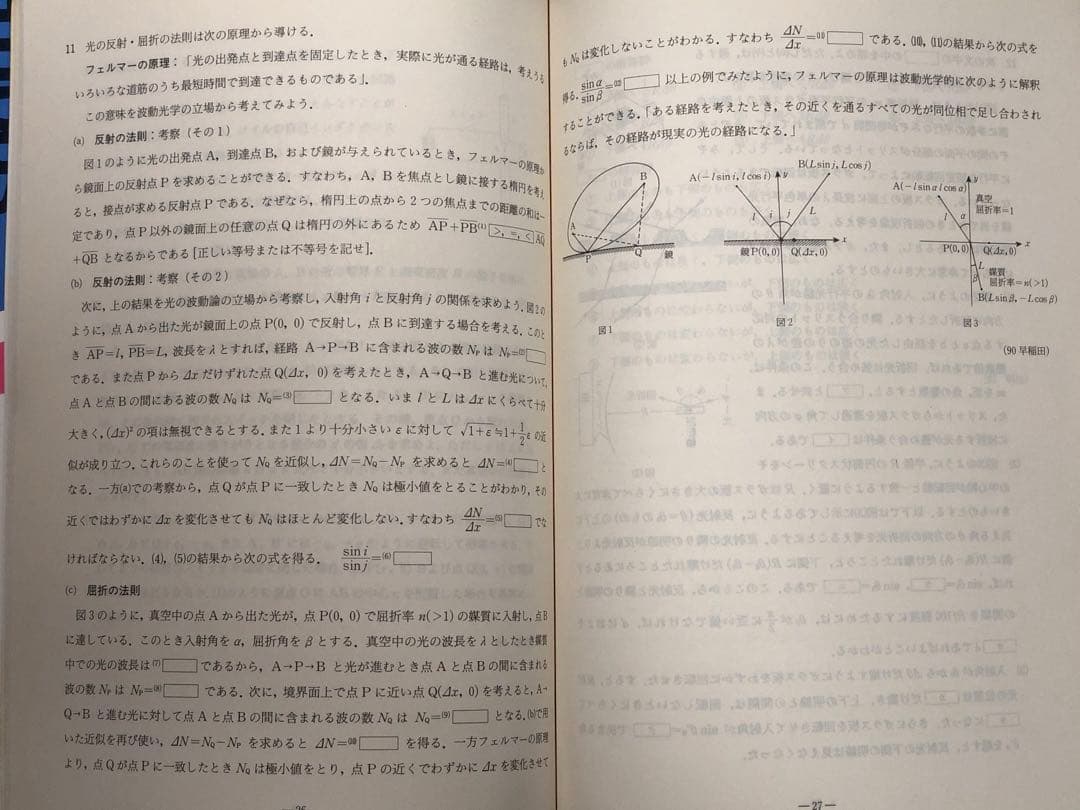 11 光の反射・屈折の法則は次の原理から導ける.
フェルマーの原理:「光の出発点と到達点を固定したとき,実際に光が通る経路は,考えうる
いろいろな道筋のうち最短時間で到達できるものである」.
この意味を波動光学の立場から考えてみよう.
(a) 反射の法則:考察(その1)
図1のように光の出発点A,到達点B,および鏡が与えられているとき,フェルマーの原理か
ら鏡面上の反射点Pを求めることができる.すなわち,A,Bを焦点とし鏡に接する楕円を考え
ると,接点が求める反射点Pである.なぜなら,楕円上の点から2つの焦点までの距離の和は一
定であり,点P以外の鏡面上の任意の点Qは楕円の外にあるため AP+PB (1) >, =, < AQ
+QB となるからである[正しい等号または不等号を記せ].
(b) 反射の法則:考察(その2)
次に,上の結果を光の波動論の立場から考察し,入射角 i と反射角 j の関係を求めよう.図2の
ように,点Aから出た光が鏡面上の点P(0, 0)で反射し,点Bに到達する場合を考える.このと
き AP=l, PB=L, 波長をλとすれば,経路 A→P→B に含まれる波の数 NP は NP=(2)
である.また点Pから Δx だけずれた点Q(Δx, 0)を考えたとき,A→Q→B と進む光について,
点Aと点Bの間にある波の数 NQ は NQ=(3) となる.いま l と L は Δx にくらべて十分
大きく,(Δx)² の項は無視できるとする.また1より十分小さい ε に対して √1+ε≒1+1/2 ε の近
似が成り立つ.これらのことを使って NQ を近似し,ΔN=NQ−NP を求めると ΔN=(4) と
なる.一方(a)での考察から,点Qが点Pに一致したとき NQ は極小値をとることがわかり,その
近くではわずかに Δx を変化させても NQ はほとんど変化しない.すなわち ΔN/Δx=(5) でな
ければならない.(4), (5)の結果から次の式を得る. sin i/sin j=(6)
(c) 屈折の法則
図3のように,真空中の点Aから出た光が,点P(0, 0)で屈折率 n(>1) の媒質に入射し,点B
に達している.このとき入射角を α,屈折角を β とする.真空中の光の波長を λ としたとき媒質
中での光の波長は(7) であるから,A→P→B と光が進むとき点Aと点Bの間に含まれる
波の数 NP は NP=(8) である.次に,境界面上で点Pに近い点Q(Δx, 0)を考えると,A→
Q→B と進む光に対して点Aと点Bの間に含まれる波の数 NQ は NQ=(9) となる.(b)で用
いた近似を再び使い,ΔN=NQ−NP を求めると ΔN=(10) を得る.一方フェルマーの原理
より,点Qが点Pに一致したとき NQ は極小値をとり,点Pの近くでわずかに Δx を変化させて
— 26
も NQ は変化しないことがわかる.すなわち ΔN/Δx=(11) である.(10), (11)の結果から次の式を
得る. sin α/sin β=(12) 以上の例でみたように,フェルマーの原理は波動光学的に次のように解釈
することができる.「ある経路を考えたとき,その近くを通るすべての光が同位相で足し合わされ
るならば,その経路が現実の光の経路になる.」
A
B
P
Q
鏡
図1
A(−l sin i, l cos i)
B(L sin j, L cos j)
y
l
i
j
L
x
鏡P(0, 0)
Q(Δx, 0)
図2
A(−l sin α l cos α)
y
真空
屈折率=1
l
α
P(0, 0)
Q(Δx, 0)
x
L
β
媒質
屈折率=n(>1)
B(L sin β, −L cos β)
図3
(90 早稲田)
— 27 —